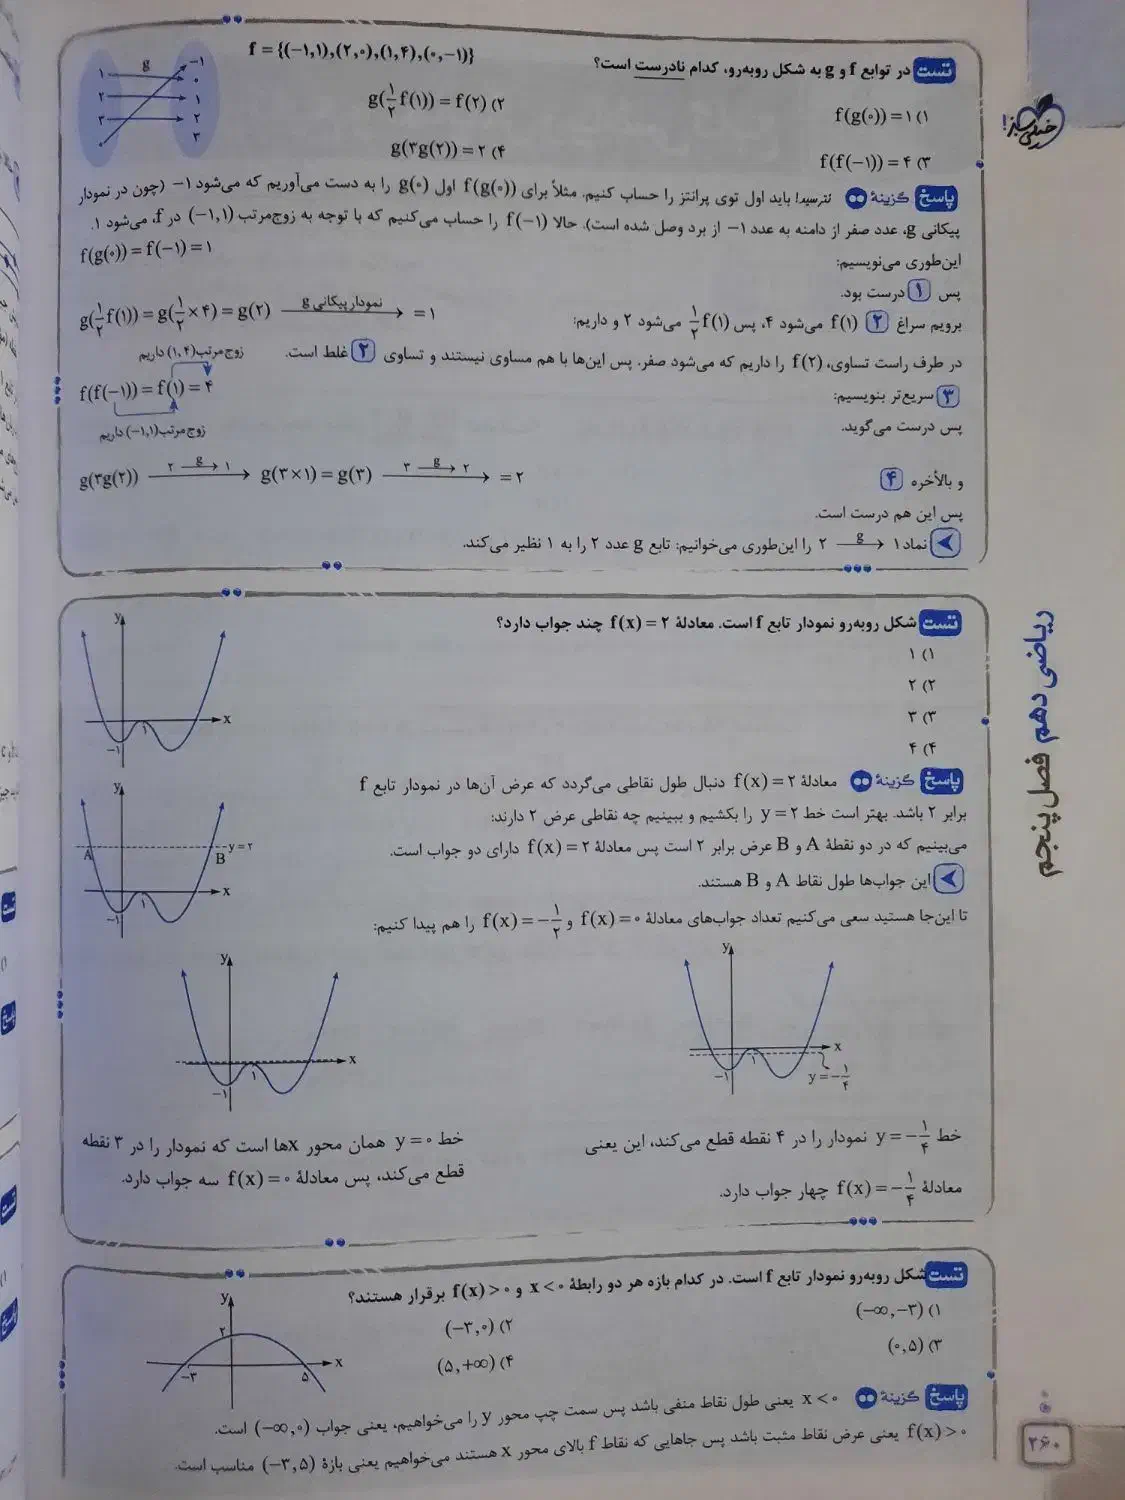 تست در توابع f و g به شکل روبه‌رو، کدام نادرست است؟
f = {(−۱,۱),(۲,۰),(۱,۴),(۰,−۱)}
g
۱
۲
۳
۰
−۱
۰
۱
۲
۳
۱) f(g(۰)) = ۱
۲) g(۱/۲ f(۱)) = f(۲)
۳) f(f(−۱)) = ۴
۴) g(۳g(۲)) = ۲
پاسخ گزینهٔ نترسید! باید اول توی پرانتز را حساب کنیم. مثلاً برای f(g(۰)) اول g(۰) را به دست می‌آوریم که می‌شود ۱− (چون در نمودار
پیکانی g، عدد صفر از دامنه به عدد ۱− از برد وصل شده است). حالا f(−۱) را حساب می‌کنیم که با توجه به زوج‌مرتب (−۱,۱) در f، می‌شود ۱.
این‌طوری می‌نویسیم:
f(g(۰)) = f(−۱) = ۱
پس ۱ درست بود.
برویم سراغ ۲ f(۱) می‌شود ۴، پس ۱/۲ f(۱) می‌شود ۲ و داریم:
g(۱/۲ f(۱)) = g(۱/۲ × ۴) = g(۲) نمودار پیکانی g → = ۱
در طرف راست تساوی، f(۲) را داریم که می‌شود صفر. پس این‌ها با هم مساوی نیستند و تساوی ۲ غلط است.
زوج‌مرتب (۱,۴) داریم
۳ سریع‌تر بنویسیم:
f(f(−۱)) = f(۱) = ۴
پس درست می‌گوید.
زوج‌مرتب (−۱,۱) داریم
و بالأخره ۴
g(۳g(۲)) ۲ g→ ۱ → g(۳×۱) = g(۳) ۳ g→ ۲ → = ۲
پس این هم درست است.
نماد ۱ g→ ۲ را این‌طوری می‌خوانیم: تابع g عدد ۲ را به ۱ نظیر می‌کند.
تست شکل روبه‌رو نمودار تابع f است. معادلهٔ f(x) = ۲ چند جواب دارد؟
۱) ۱
۲) ۲
۳) ۳
۴) ۴
y
x
۱
−۱
پاسخ گزینهٔ معادلهٔ f(x) = ۲ دنبال طول نقاطی می‌گردد که عرض آن‌ها در نمودار تابع f
برابر ۲ باشد. بهتر است خط y = ۲ را بکشیم و ببینیم چه نقاطی عرض ۲ دارند:
می‌بینیم که در دو نقطهٔ A و B عرض برابر ۲ است پس معادلهٔ f(x) = ۲ دارای دو جواب است.
این جواب‌ها طول نقاط A و B هستند.
y
A
B
y = ۲
x
۱
−۱
تا این‌جا هستید سعی می‌کنیم تعداد جواب‌های معادلهٔ f(x) = ۰ و f(x) = −۱/۲ را هم پیدا کنیم:
y
x
۱
−۱
y = −۱/۴
y
x
۱
−۱
خط y = −۱/۴ نمودار را در ۴ نقطه قطع می‌کند، این یعنی
معادلهٔ f(x) = −۱/۴ چهار جواب دارد.
خط y = ۰ همان محور xها است که نمودار را در ۳ نقطه
قطع می‌کند، پس معادلهٔ f(x) = ۰ سه جواب دارد.
تست شکل روبه‌رو نمودار تابع f است. در کدام بازه هر دو رابطهٔ x < ۰ و f(x) > ۰ برقرار هستند؟
۱) (−∞,−۳)
۲) (−۳,۰)
۳) (۰,۵)
۴) (۵,+∞)
y
۲
x
−۳
۵
پاسخ گزینهٔ x < ۰ یعنی طول نقاط منفی باشد پس سمت چپ محور y را می‌خواهیم، یعنی جواب (−∞,۰) است.
f(x) > ۰ یعنی عرض نقاط مثبت باشد پس جاهایی که نقاط f بالای محور x هستند می‌خواهیم یعنی بازهٔ (−۳,۵) مناسب است.
خیلی سبز!
ریاضی دهم فصل پنجم
۲۶۰